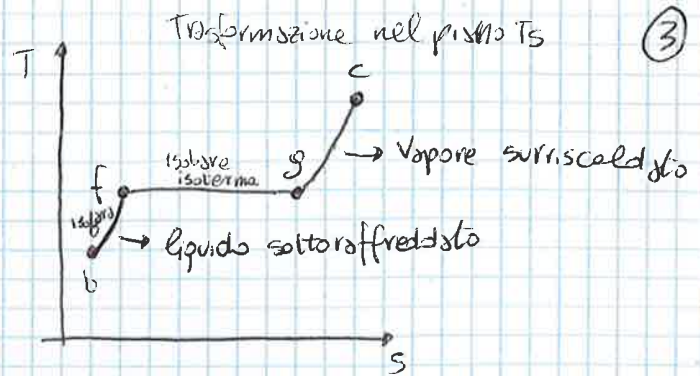 Trasformazione nel piano Ts
3
T
c
isobara
isoterma
g
→ Vapore surriscaldato
f
isobara
→ liquido sottoraffreddato
b
s